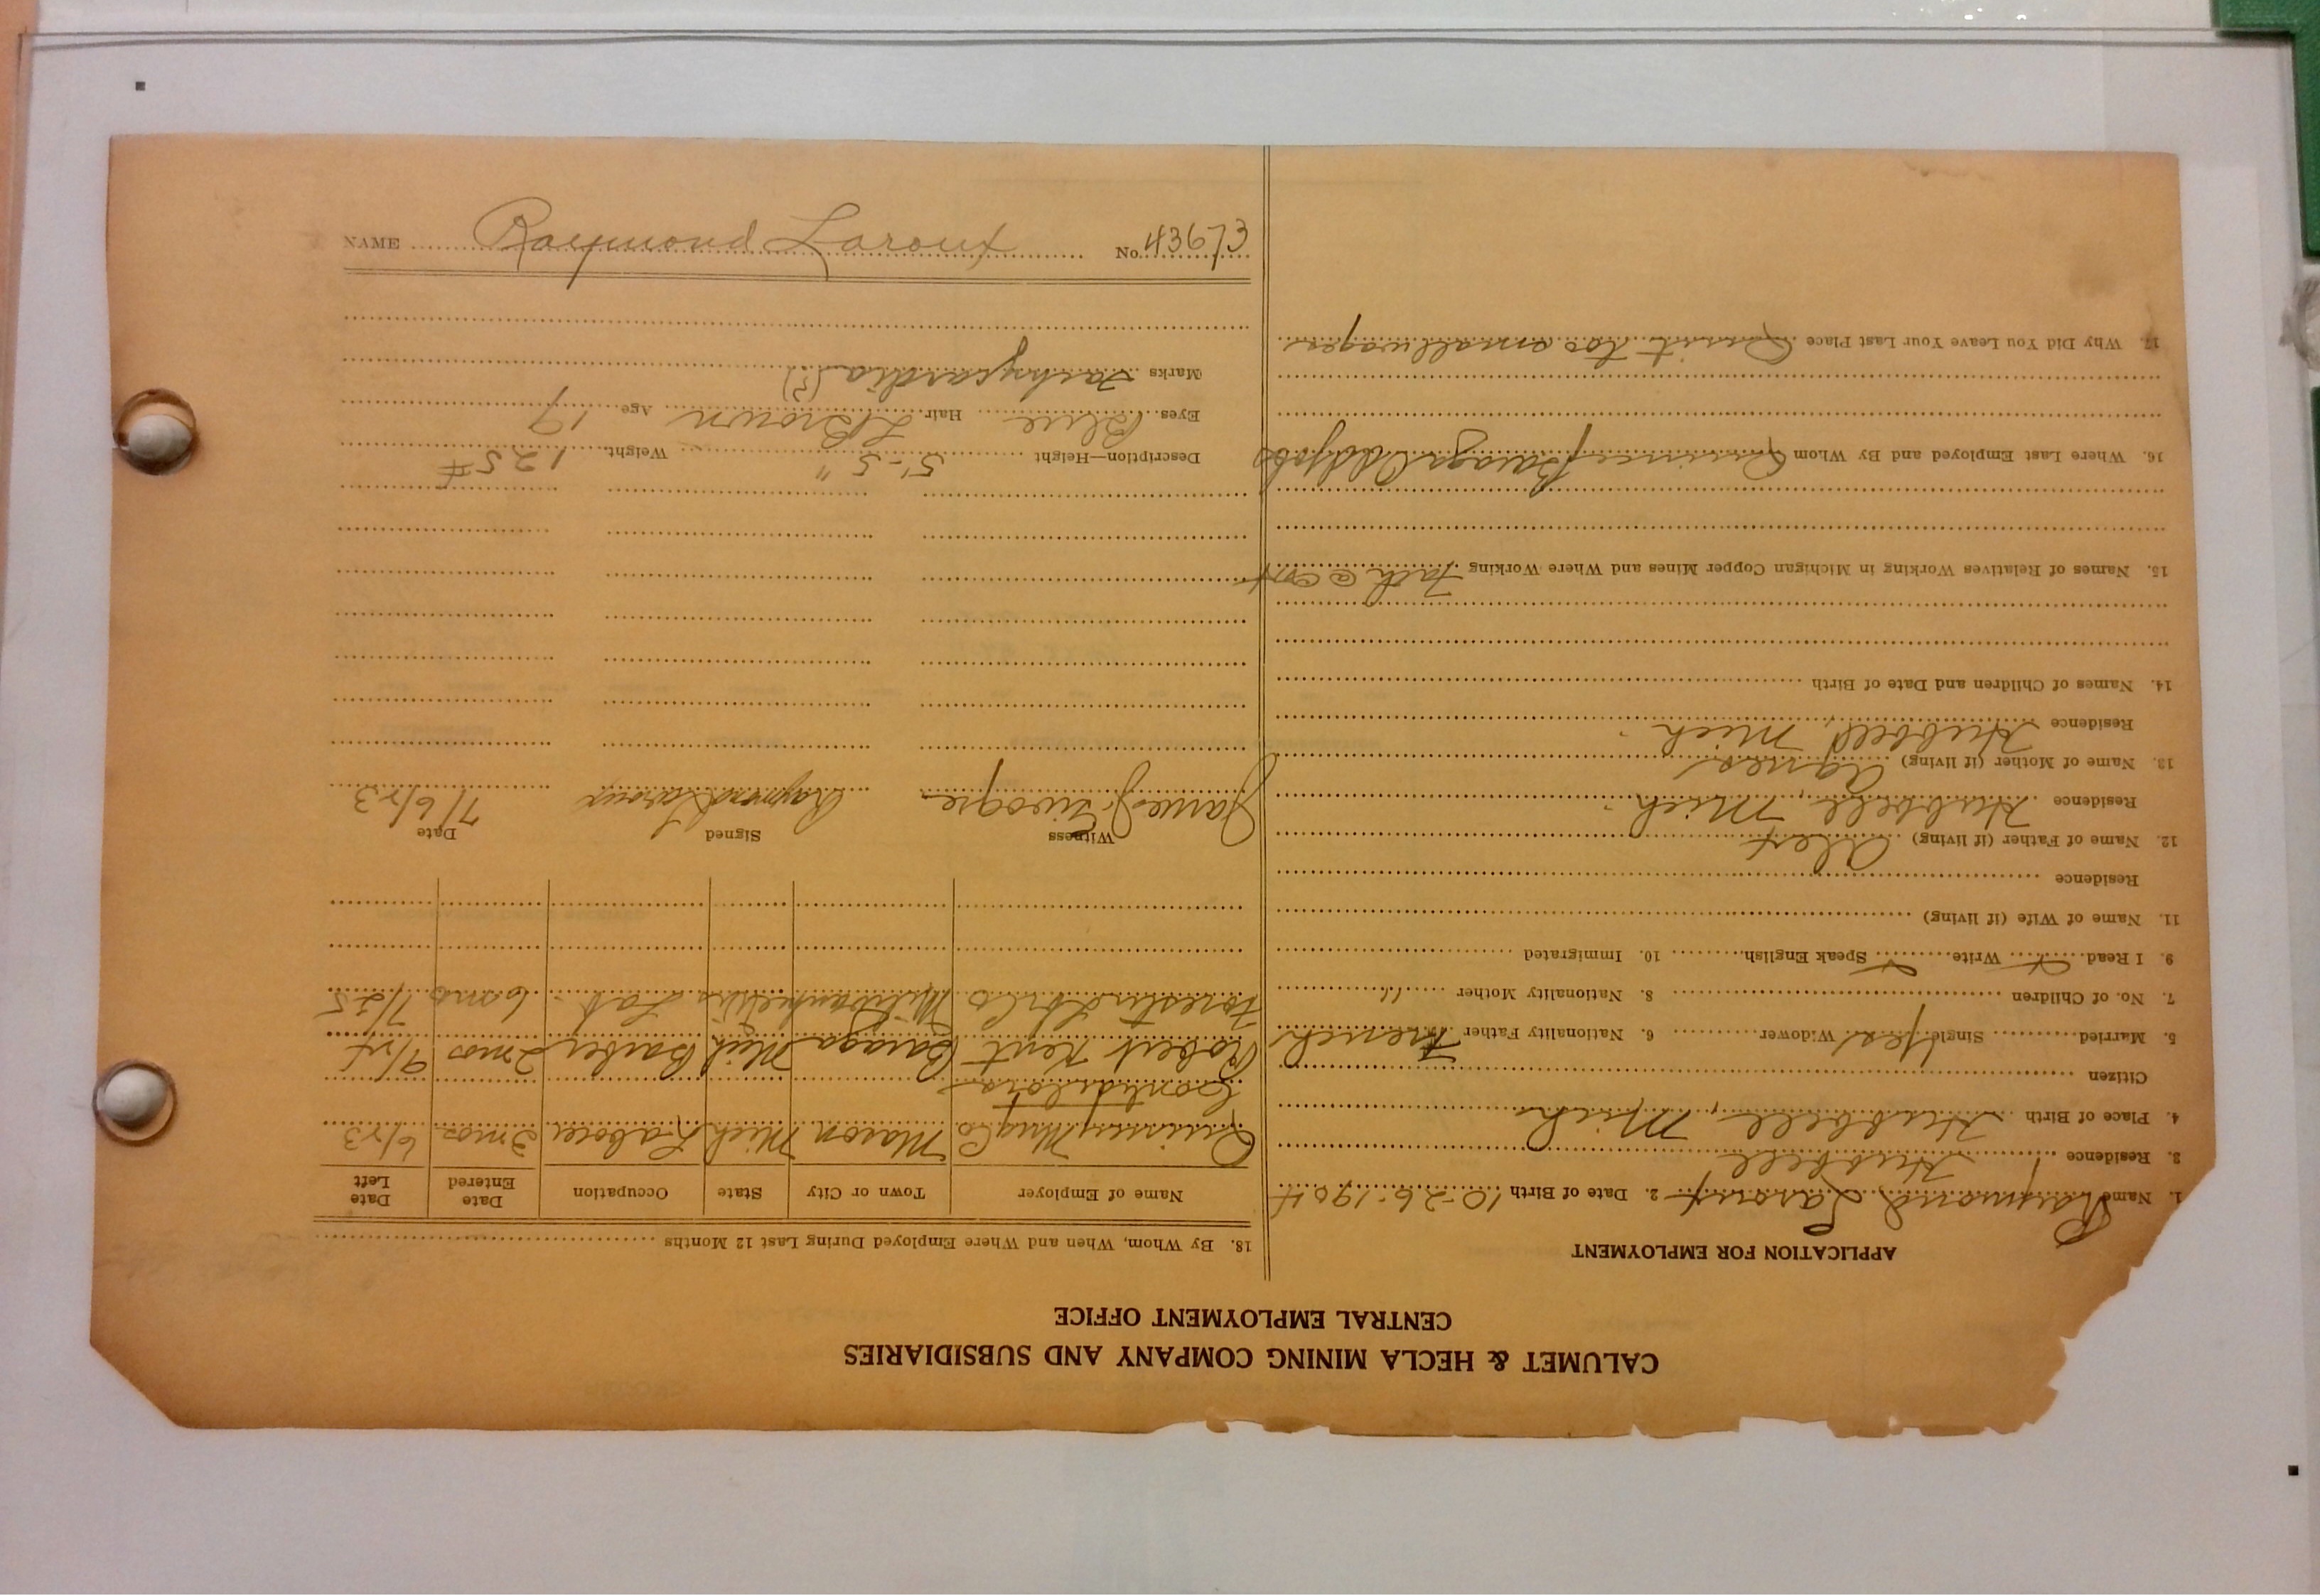 CALUMET & HECLA MINING COMPANY AND SUBSIDIARIES
CENTRAL EMPLOYMENT OFFICE
APPLICATION FOR EMPLOYMENT
1. Name Raymond Laroux 2. Date of Birth 10-26-1904
3. Residence Hubbell
4. Place of Birth Hubbell, Mich
Citizen
5. Married Single Yes Widower 6. Nationality Father French
7. No. of Children 8. Nationality Mother "
9. I Read Write Speak English 10. Immigrated
11. Name of Wife (if living)
Residence
12. Name of Father (if living) Alex
Residence Hubbell, Mich
13. Name of Mother (if living) Agnes
Residence Hubbell, Mich
14. Names of Children and Date of Birth
15. Names of Relatives Working in Michigan Copper Mines and Where Working
16. Where Last Employed and By Whom Quincy Baraga Odd jobs
17. Why Did You Leave Your Last Place Quit too small wages
18. By Whom, When and Where Employed During Last 12 Months
Name of Employer Town or City State Occupation Date Entered Date Left
Quincy Mng Co Mason Mich Laborer 3 mos 6/23
Robert Kent Baraga Mich Barber 2 mos
Milwaukee Wis Lab. 6 mo
Witness Signed Date
James J. Raymond Laroux 7/6/23
Description—Height 5'-5" Weight 125#
Eyes Blue Hair L Brown Age 17
Marks Tachycardia (?)
NAME Raymond Laroux No. 43673